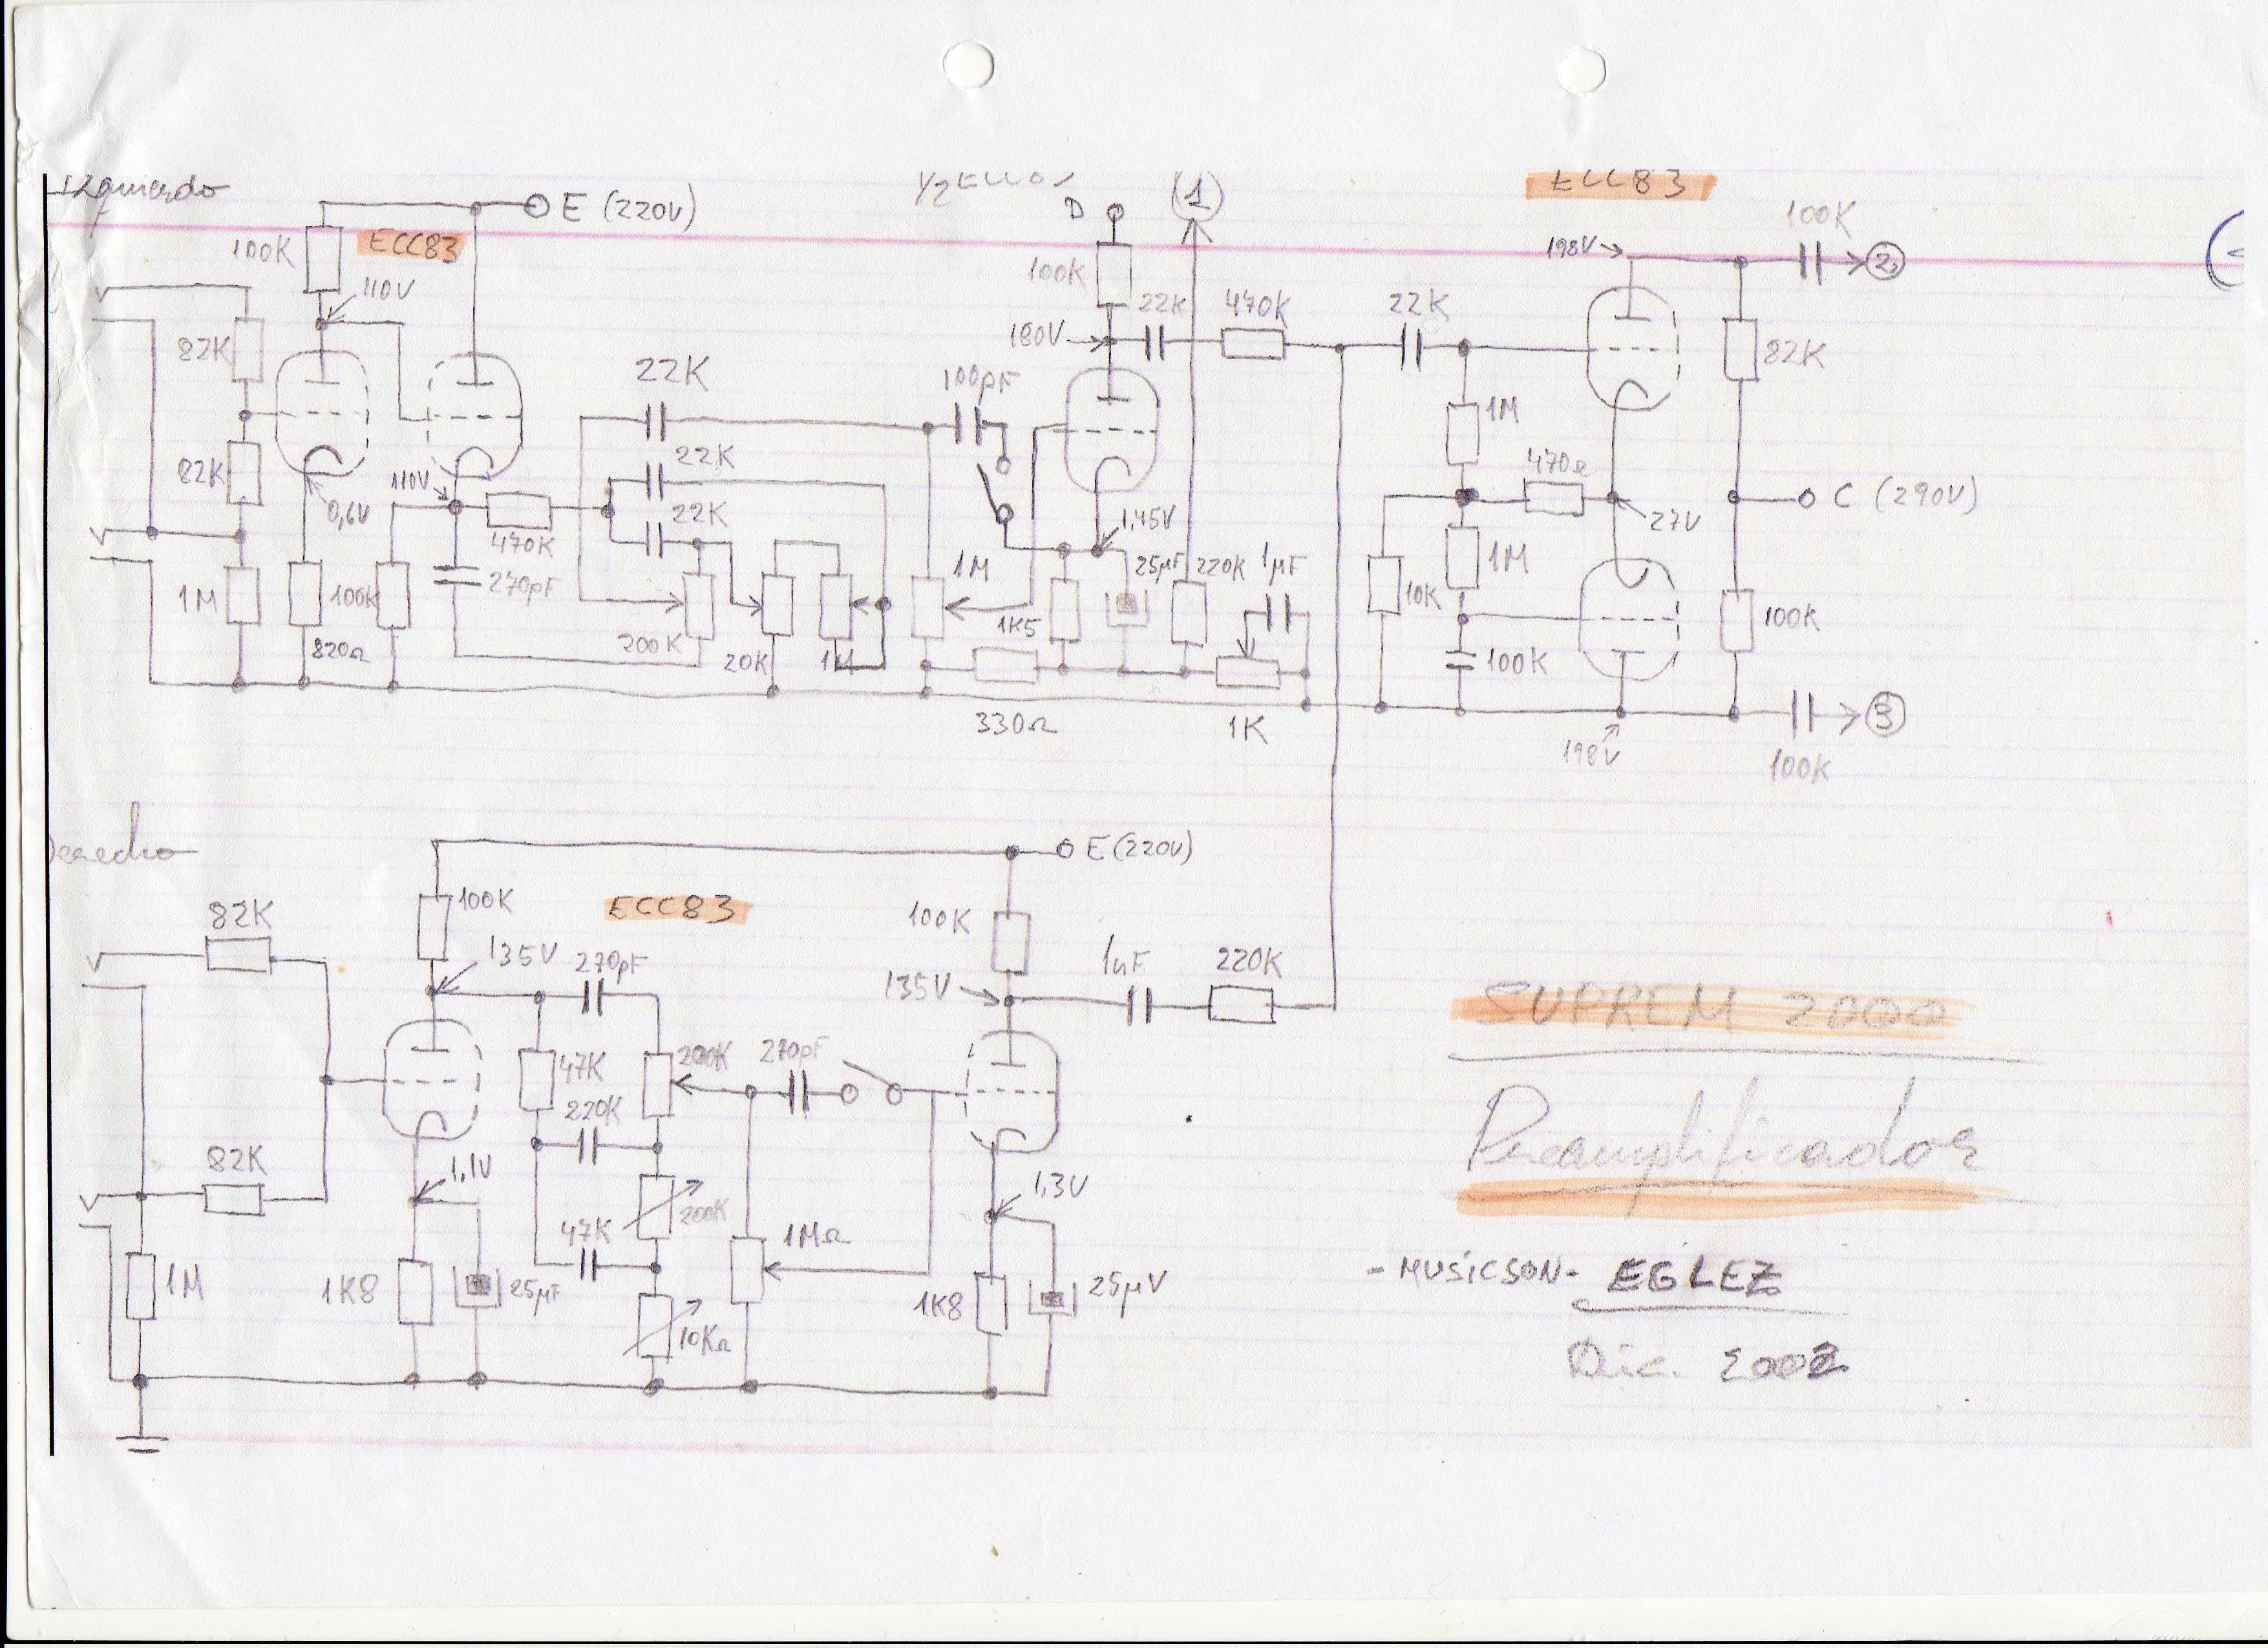 Izquierdo
E (220V)
100K
ECC83
110V
82K
82K
0,6V
110V
470K
1M
820Ω
100K
270pF
22K
22K
22K
200K
20K
1M
100pF
1M
D
100K
180V
22K
470K
1,45V
25µF
220K
1µF
1K5
330Ω
1K
(1)
22K
ECC83
198V
100K
2
82K
1M
470Ω
27V
C (290V)
10K
1M
100K
100K
198V
100K
3
Derecho
E (220V)
82K
100K
ECC83
135V
270pF
47K
200K
220K
270pF
82K
1,1V
47K
200K
1MΩ
1M
1K8
25µF
10KΩ
100K
135V
1µF
220K
1,3V
1K8
25µV
SUPREM 2000
Preamplificador
- MUSICSON - EGLEZ
Dic. 2002